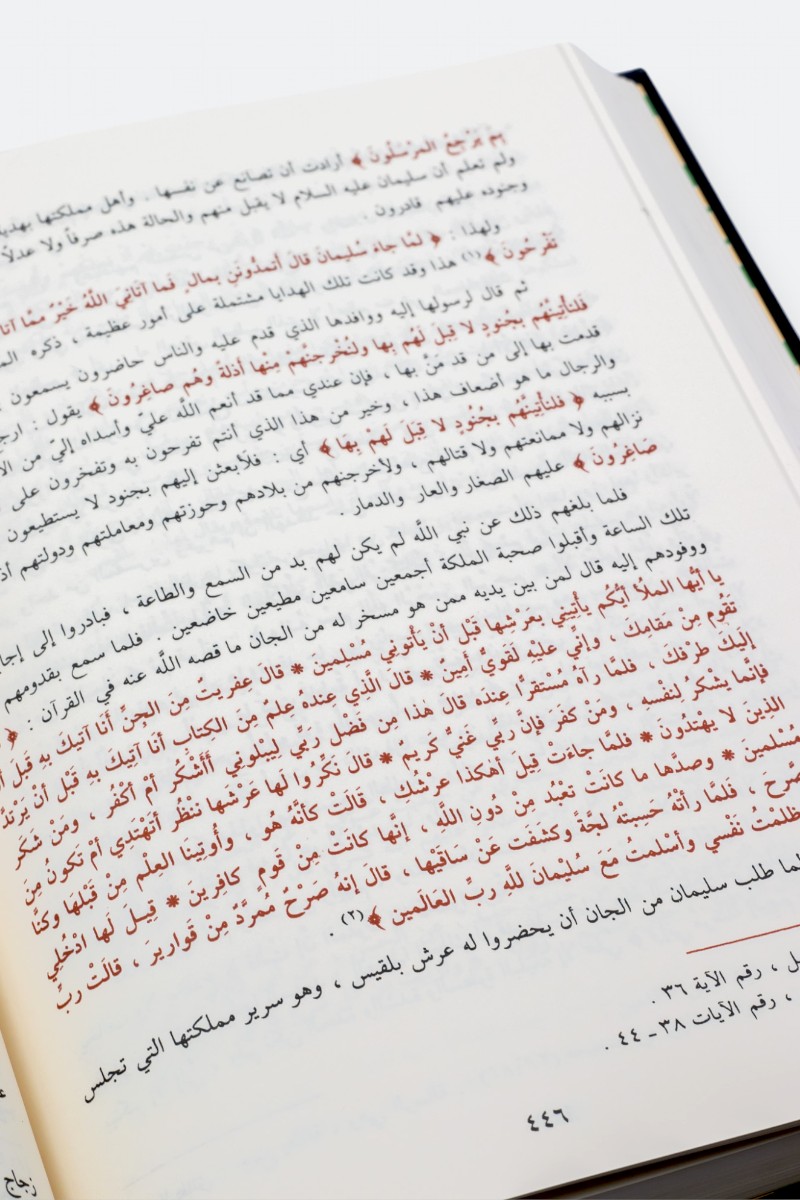 بِمَ يَرْجِعُ المَرْسَلُونَ ﴾ أرادت أن تصانع عن نفسها . وأهل مملكتها بهدية
ولم تعلم أن سليمان عليه السلام لا يقبل منهم والحالة هذه صرفاً ولا عدلاً
وجنوده عليهم قادرون .
ولهذا : ﴿ لمّا جاءَ سُليمانَ قالَ أتمدُونَنِ بمالٍ فَما آتانيَ اللَّهُ خَيْرٌ ممَّا
تَفْرحُونَ ﴾(١) هذا وقد كانت تلك الهدايا مشتملة على أمور عظيمة ، ذكره
ثم قال لرسولها إليه ووافدها الذي قدم عليه والناس حاضرون يسمعون
فَلنأتِينَّهُم بجُنودٍ لا قِبلَ لَهُم بِها ولنُخرجنَّهُمْ مِنْها أذلةً وهُم صاغِرُونَ ﴾ يقول :
قدمت بها إلى من قد مَنَّ بها ، فإن عندي مما قد أنعم اللَّه عليّ وأسداه إليّ من
والرجال ما هو أضعاف هذا ، وخير من هذا الذي أنتم تفرحون به وتفخرون على
بسببه ﴿ فلنأتينَّهُم بجُنُودٍ لا قِبَلَ لَهمْ بِهَا ﴾ أي : فلأبعثن إليهم بجنود لا يستطيعون
نزالهم ولا ممانعتهم ولا قتالهم ، ولأخرجنهم من بلادهم وحوزتهم ومعاملتهم ودولتهم
صَاغِرُونَ ﴾ عليهم الصغار والعار والدمار .
فلما بلغهم ذلك عن نبي اللَّه لم يكن لهم بد من السمع والطاعة ، فبادروا إلى
تلك الساعة وأقبلوا صحبة الملكة أجمعين سامعين مطيعين خاضعين . فلما سمع بقدومهم
ووفودهم إليه قال لمن بين يديه ممن هو مسخر له من الجان ما قصه اللَّه عنه في القرآن : ﴿
يا أيُّها الملأُ أيُّكُم يأْتِيني بعَرْشِها قَبْل أنْ يَأتوني مُسْلِمينَ * قالَ عِفريتٌ مِنَ الجِنِّ أنَا آتيكَ بِهِ قَبلَ
تقُوم مِنْ مَقامِكَ ، وإنِّي عليْهِ لَقويٌّ أمِينٌ * قالَ الَّذِي عِندهُ عِلمٌ مِنَ الكِتابِ أنَا آتِيكَ بِهِ قَبْل أنْ يَرْتدَّ
إليكَ طرْفكَ ، فلمَّا رآهُ مُسْتقرًّا عِندَه قالَ هٰذا مِن فَضْل رَبِّي لِيبْلونِي أَأَشْكُر أمْ أكْفُر ، ومَنْ شَكَر
فإنَّما يشْكرُ لِنفْسِهِ ، ومَنْ كفَرَ فإنَّ ربِّي غَنيٌّ كَريمٌ * قالَ نَكِّرُوا لَها عَرْشَها ننْظُر أتهْتَدِي أمْ تَكونُ مِنَ
الذِينَ لا يهْتدُونَ * فلمَّا جاءَتْ قِيلَ أهكذا عرْشُكِ ، قَالَتْ كأنَّهُ هُو ، وأُوتِينَا العِلْم مِنْ قَبْلها وكنَّا
مُسْلمينَ * وصدَّها ما كانَتْ تعْبُد مِنْ دُونِ اللَّهِ ، إنَّها كانَتْ مِنْ قَومٍ كافِرينَ * قِيلَ لَها ادْخُلِي
الصَّرحَ ، فلمَّا رأتْهُ حَسِبتْهُ لجَّةً وكشَفَت عَنْ سَاقَيْها ، قالَ إنهُ صَرْحٌ مُمرَّدٌ مِنْ قَواريرَ ، قالَتْ ربِّ
ظلمْتُ نَفْسي وأسْلمتُ مَعَ سُليمَانَ للَّهِ ربِّ العَالَمين ﴾(٢) .
لما طلب سليمان من الجان أن يحضروا له عرش بلقيس ، وهو سرير مملكتها التي تجلس
، رقم الآية ٣٦ .
، رقم الآيات ٣٨ ـ ٤٤ .
٤٤٦
زجاج